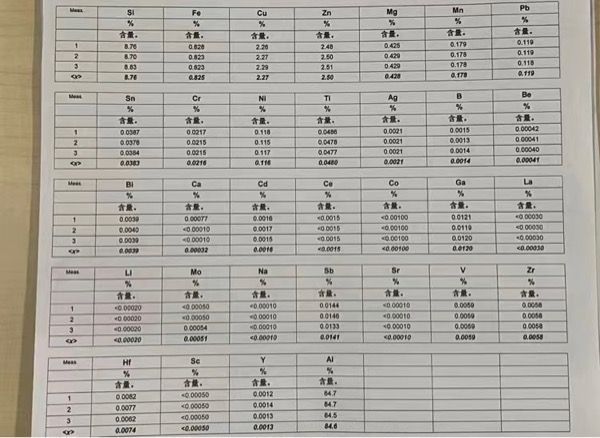 Meas. Si Fe Cu Zn Mg Mn Pb
% % % % % % %
含量. 含量. 含量. 含量. 含量. 含量. 含量.
1 8.76 0.828 2.26 2.48 0.425 0.179 0.119
2 8.70 0.823 2.27 2.50 0.429 0.178 0.119
3 8.83 0.823 2.29 2.51 0.429 0.178 0.118
<x> 8.76 0.825 2.27 2.50 0.428 0.178 0.119
Meas. Sn Cr Ni Ti Ag B Be
% % % % % % %
含量. 含量. 含量. 含量. 含量. 含量. 含量.
1 0.0387 0.0217 0.118 0.0486 0.0021 0.0015 0.00042
2 0.0378 0.0215 0.115 0.0478 0.0021 0.0013 0.00041
3 0.0384 0.0215 0.117 0.0477 0.0021 0.0014 0.00040
<x> 0.0383 0.0216 0.116 0.0480 0.0021 0.0014 0.00041
Meas. Bi Ca Cd Ce Co Ga La
% % % % % % %
含量. 含量. 含量. 含量. 含量. 含量. 含量.
1 0.0039 0.00077 0.0016 <0.0015 <0.00100 0.0121 <0.00030
2 0.0040 <0.00010 0.0017 <0.0015 <0.00100 0.0119 <0.00030
3 0.0039 <0.00010 0.0015 <0.0015 <0.00100 0.0120 <0.00030
<x> 0.0039 0.00032 0.0016 <0.0015 <0.00100 0.0120 <0.00030
Meas. Li Mo Na Sb Sr V Zr
% % % % % % %
含量. 含量. 含量. 含量. 含量. 含量. 含量.
1 <0.00020 <0.00050 <0.00010 0.0144 <0.00010 0.0059 0.0058
2 <0.00020 <0.00050 <0.00010 0.0146 <0.00010 0.0059 0.0058
3 <0.00020 0.00054 <0.00010 0.0133 <0.00010 0.0059 0.0058
<x> <0.00020 0.00051 <0.00010 0.0141 <0.00010 0.0059 0.0058
Meas. Hf Sc Y Al
% % % %
含量. 含量. 含量. 含量.
1 0.0082 <0.00050 0.0012 84.7
2 0.0077 <0.00050 0.0014 84.7
3 0.0062 <0.00050 0.0013 84.5
<x> 0.0074 <0.00050 0.0013 84.6